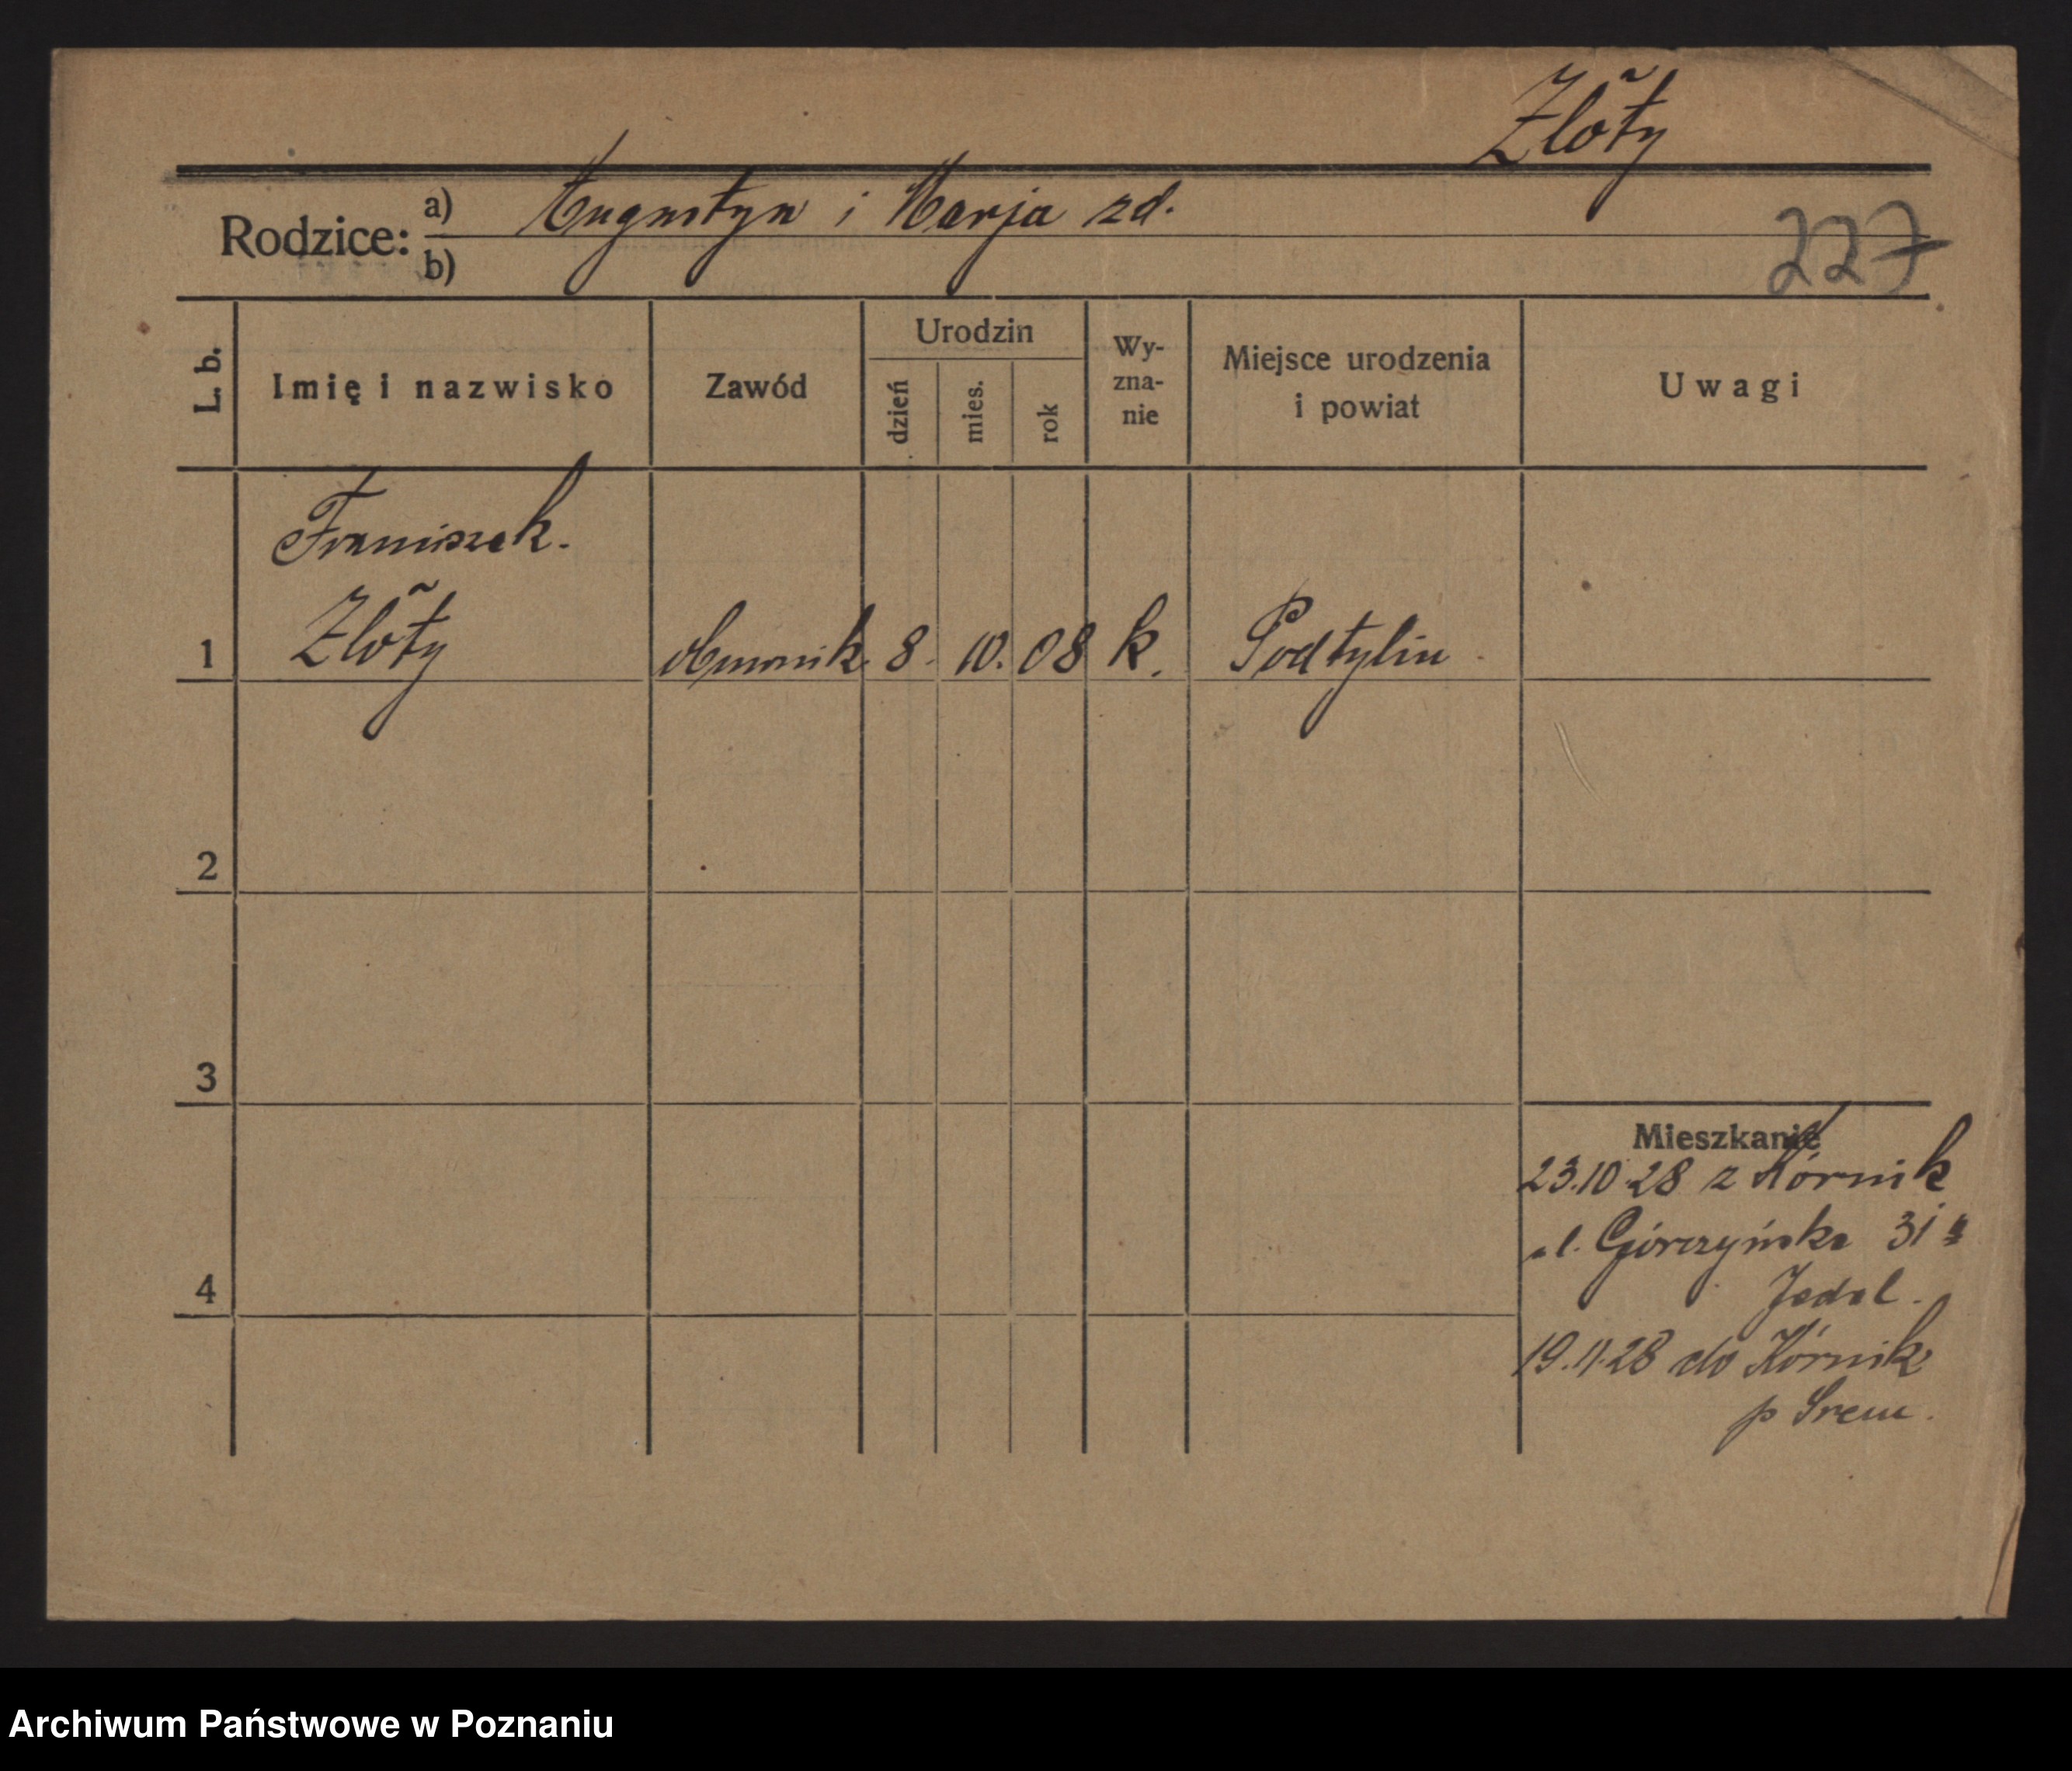 Złoty
Rodzice: a) Augustyn i Marja zd.
b)
227
L. b. Imię i nazwisko Zawód Urodzin dzień mies. rok Wy-zna-nie Miejsce urodzenia i powiat Uwagi
Franciszek.
1 Złoty 8. 10. 08 k. Podtylin
2
3
Mieszkanie
23.10.28 z Kórnik
ul. Górczyńska 31a
4
19.11.28 do Kórnik
p Srem.
Archiwum Państwowe w Poznaniu